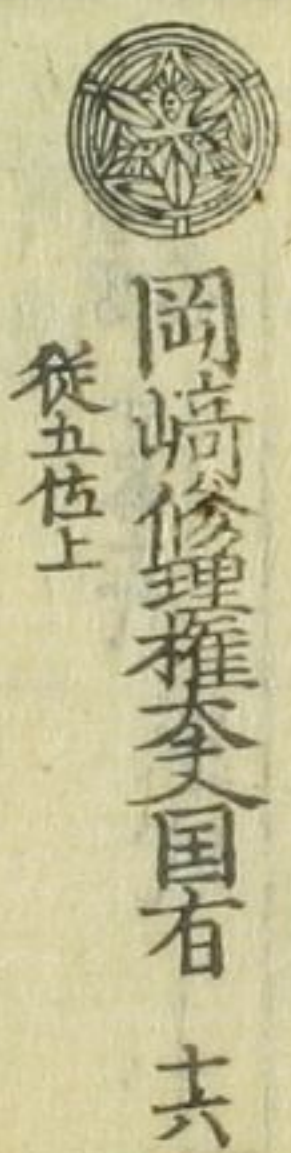 岡﨑修理権大夫国有 十六
従五位上